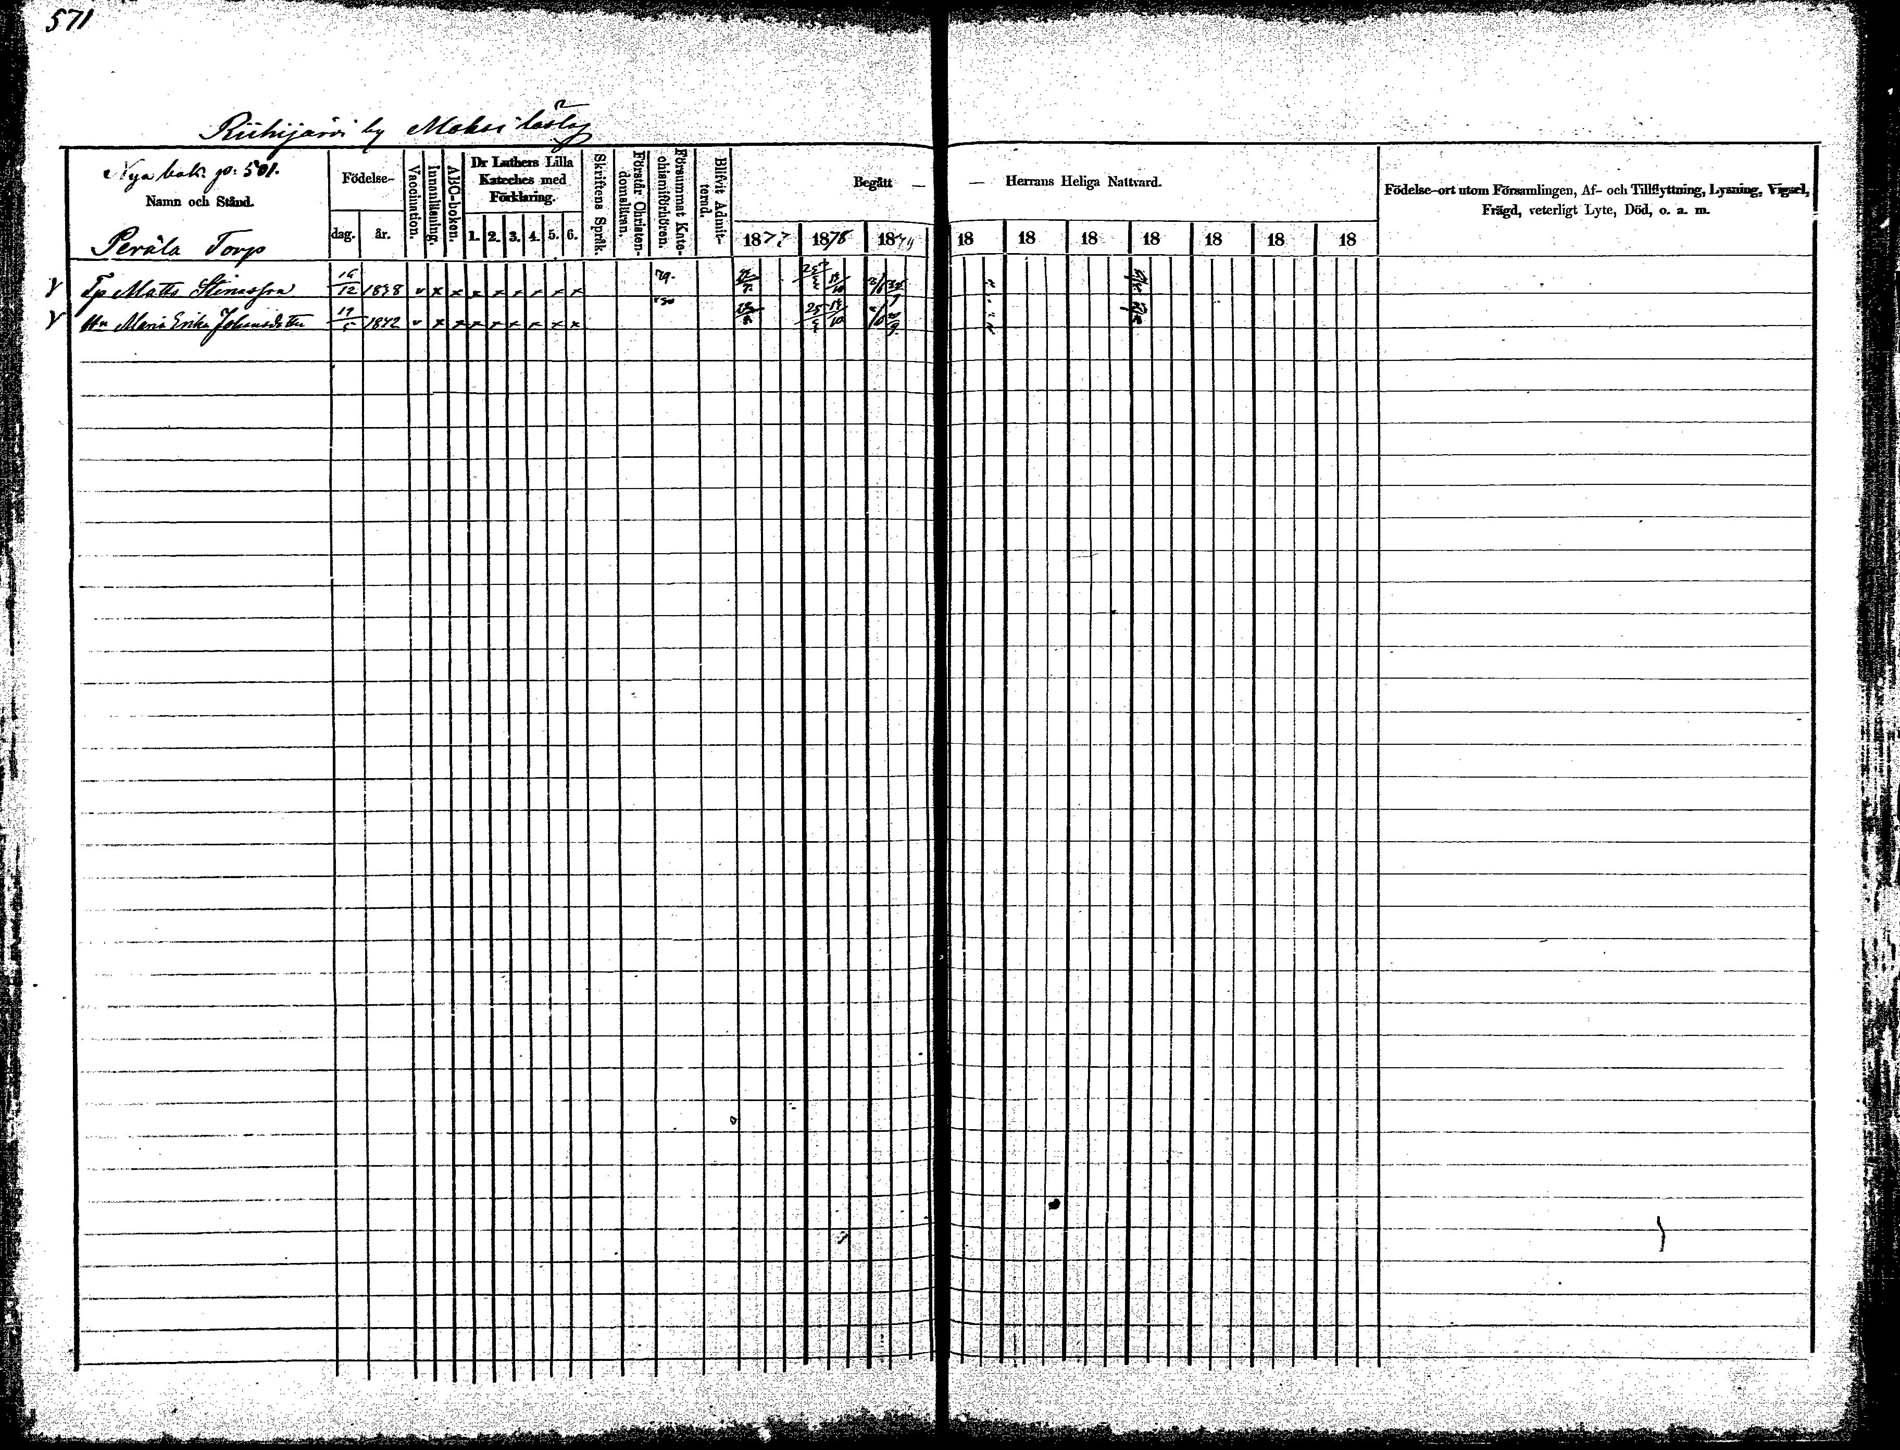 571
Riihijärvi by Moksi
Nya bok. p: 501.
Namn och Stånd.
Peräla Torp
Födelse-
dag. år.
Vaccination.
Innanläsning.
ABC-boken.
Dr Luthers Lilla
Kateches med
Förklaring.
1. 2. 3. 4. 5. 6.
Skriftens Språk.
Förstår Christen-
domsläran.
Försummat Kate-
chismiförhören.
Blifvit Admit-
terad.
Begått — — Herrans Heliga Nattvard.
1877 1878 1879 18 18 18 18 18 18 18
Födelse-ort utom Församlingen, Af- och Tillflyttning, Lysning, Vigsel,
Frägd, veterligt Lyte, Död, o. a. m.
Tp Matts 12 1838 v x x x x x x x x 79.
Hu Maria Erika Johansdotter 1842 v x x x x x x x x